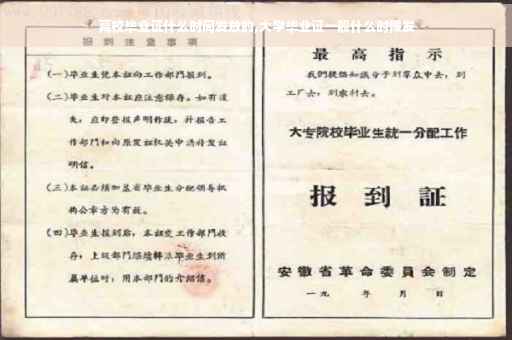 高校毕业证什么时间发放的,大学毕业证一般什么时候发
报到注意事项
(一)毕业生凭本证向工作部门报到。
(二)毕业生对本证应注意保存。如有遗
失,应即登报声明作废,并报告工
作部门和向原发证机关申请补发证
明信。
(三)本证必须加盖省毕业生分配领导机
构公章方为有效。
(四)毕业生报到后,本证交工作部门收
存;上级部门继续转派毕业生到所
属单位时,用本部门的介绍信。
最高指示
我们提倡知识分子到群众中去,到
工厂去,到农村去。
大专院校毕业生統一分配工作
报到証
安徽省革命委員会制定
一九 年 月 日